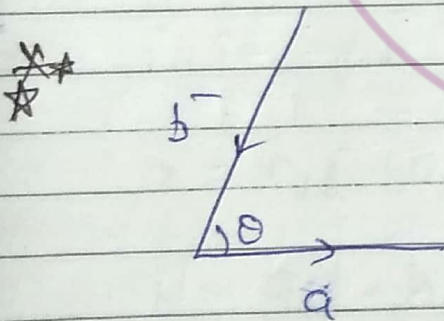 b̄
θ
a